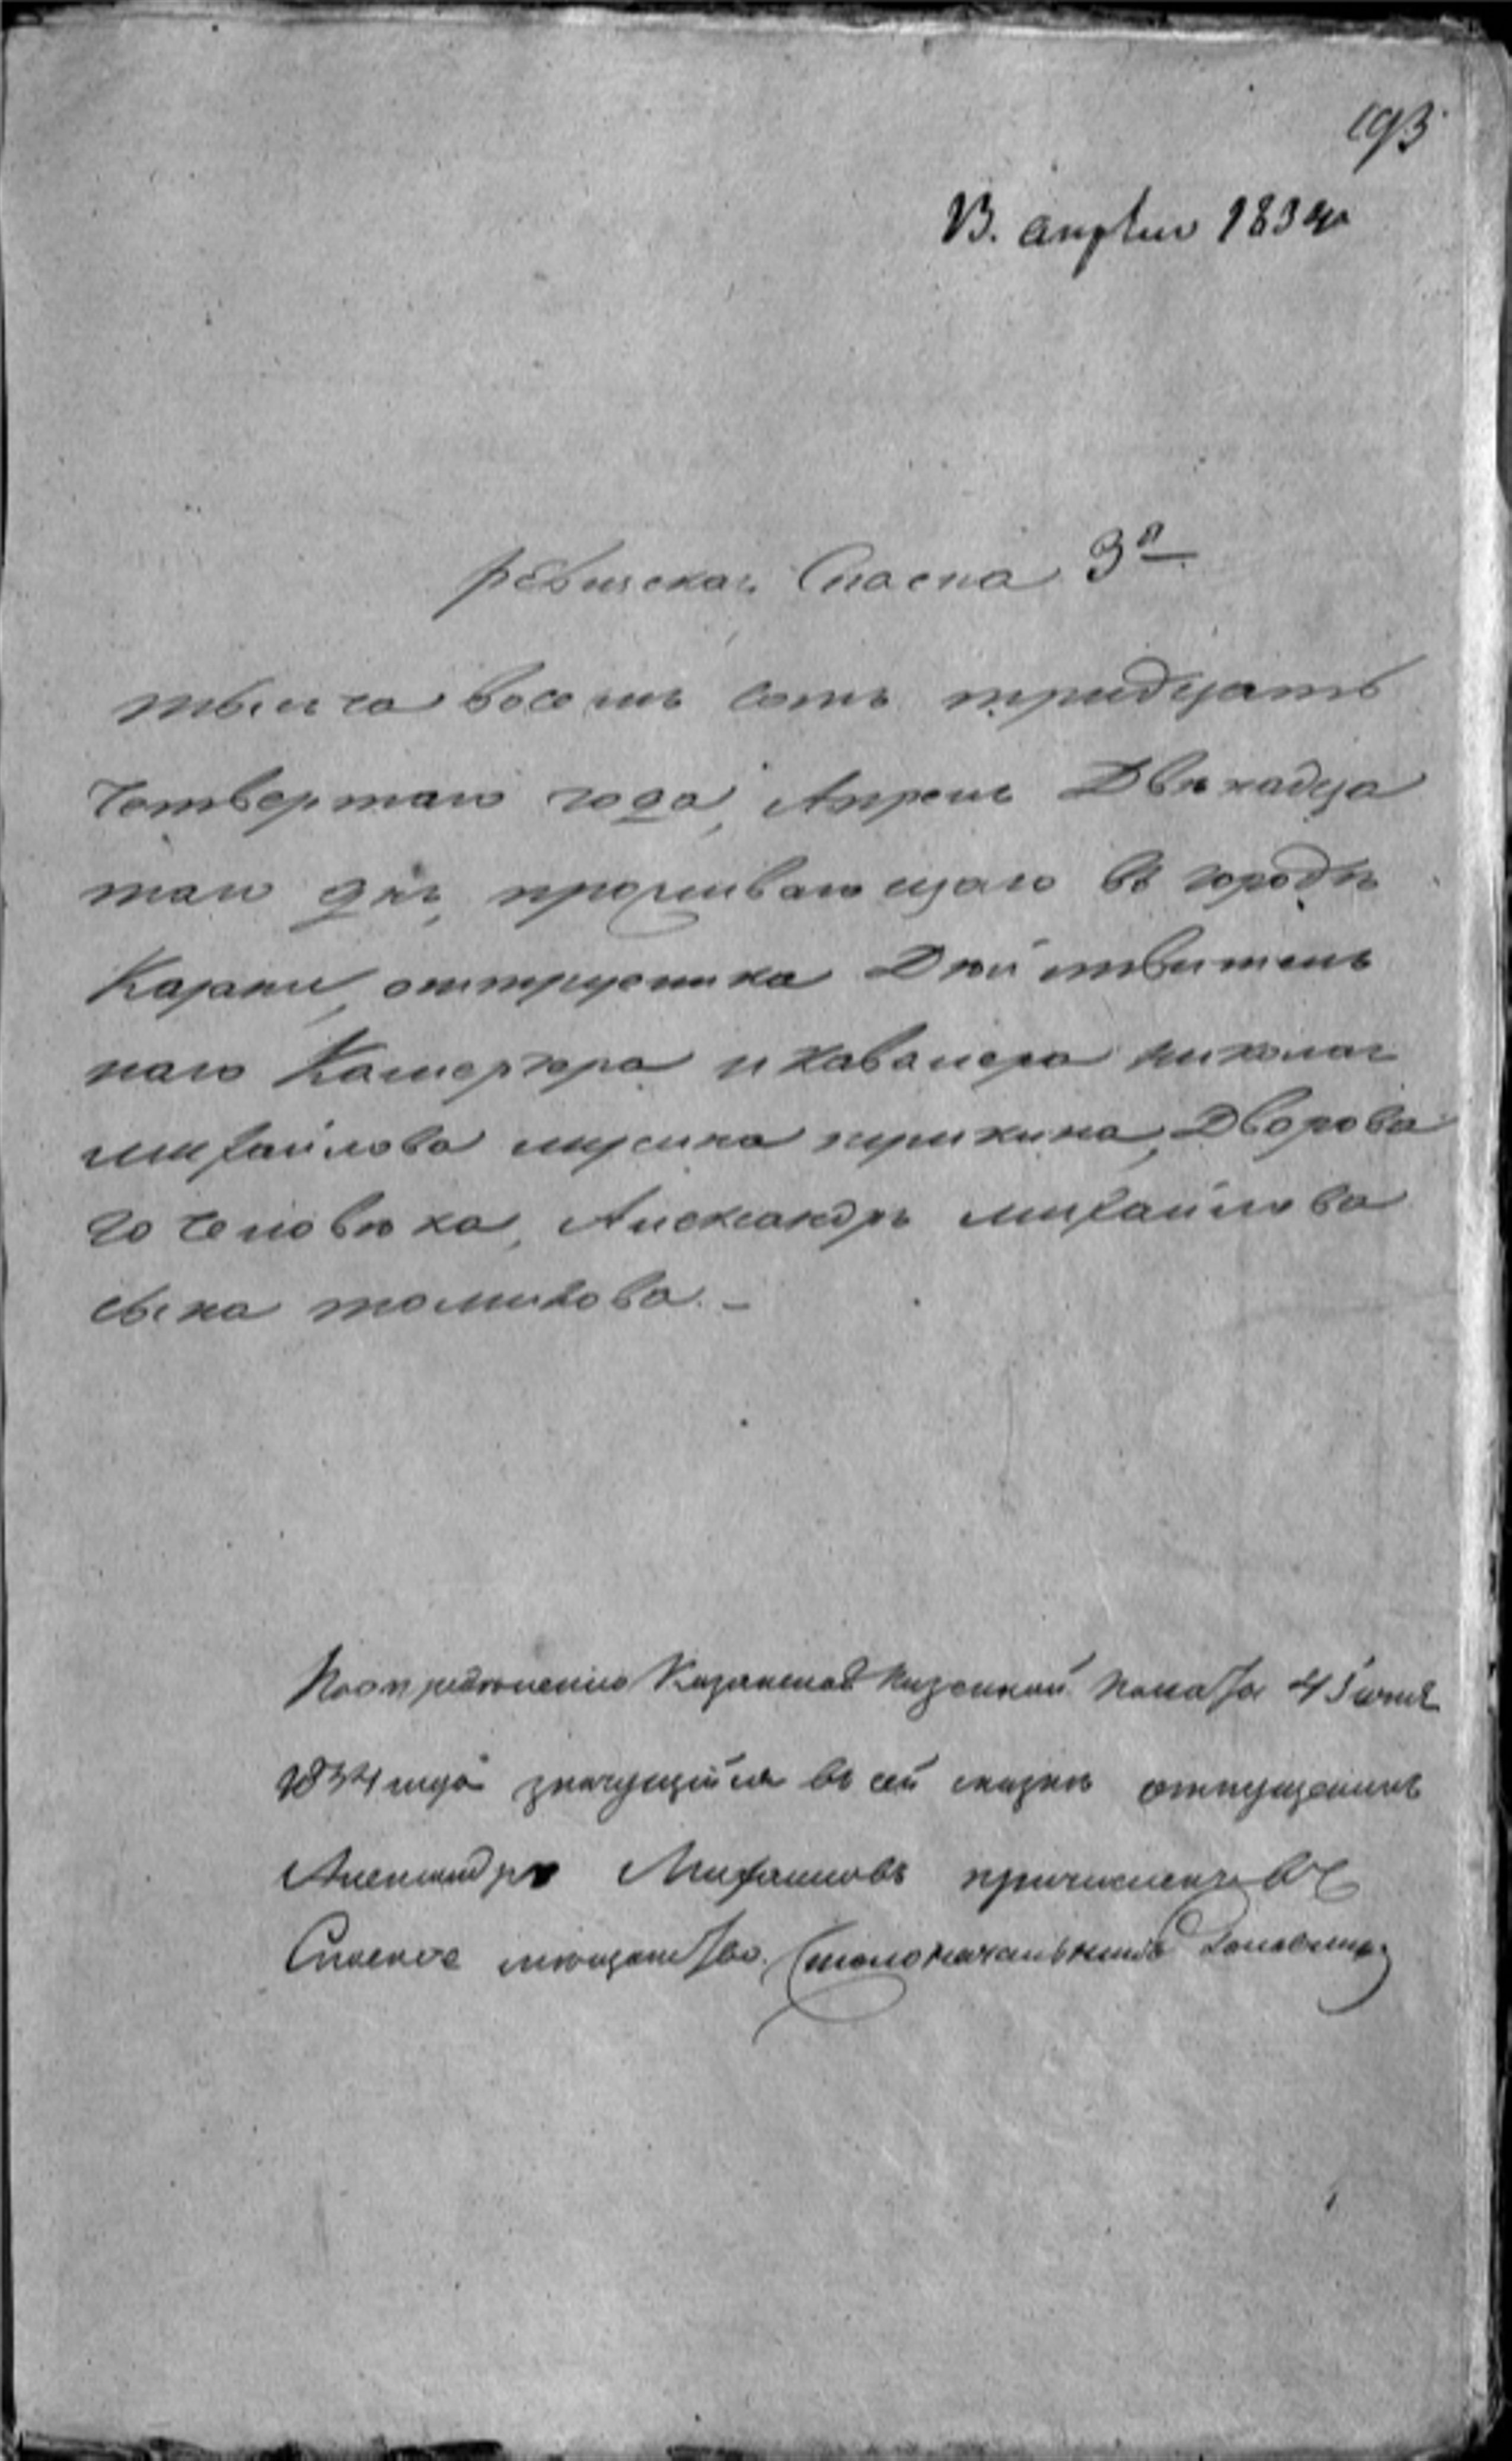 193
13. апреля 1834го
ревизская Сказка 3я
тысеча восемь сотъ тридцать
Четвертаго года, Апреля Двѣнадца
таго дня, проживающаго въ городѣ
Казани, отпущеника Дѣйствитель
наго Камергера и кавалера николая
михайлова мусина пушкина, Дворова
го человѣка, Александра михайлова
сына
По определению Казанской Казенной палаты 4 Июня
1834 года значущийся въ сей сказке отпущенникъ
Александръ Михайловъ причисленъ въ
Спаское мещанство. Столоначальникъ